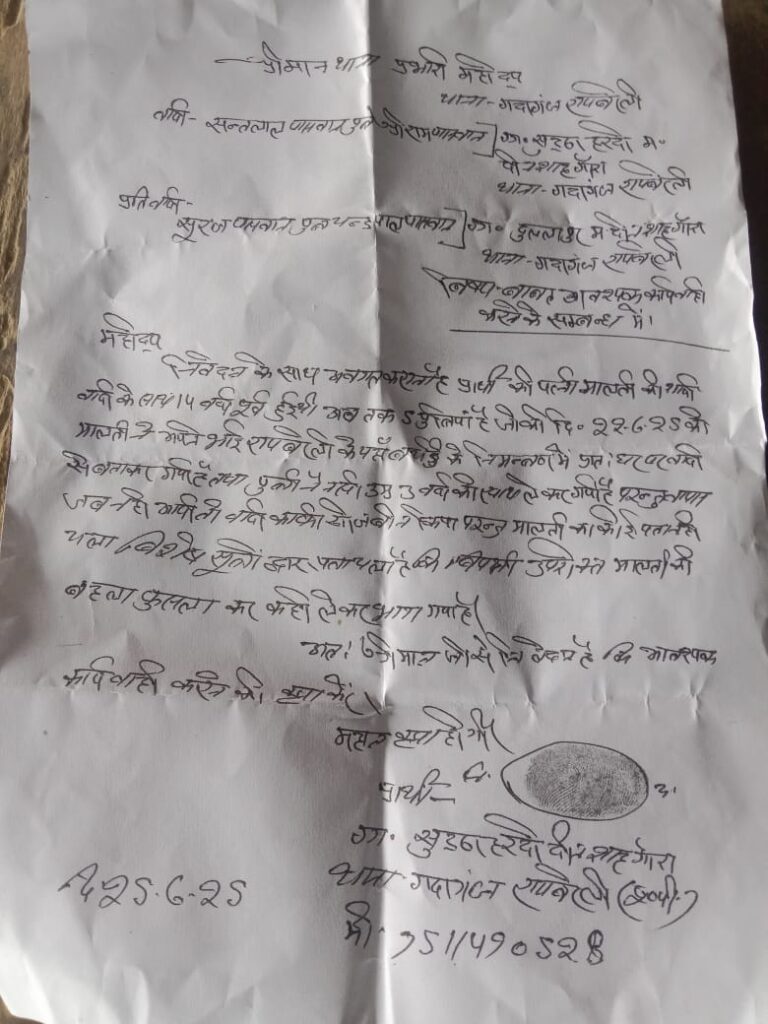 श्रीमान थाना प्रभारी महोदय
थाना- गदागंज रायबरेली
वादी- सन्तलाल पासवान पुत्र श्रीराम पासवान ] ग्रा. सुड्ठा हरदो म.
दीनशाह गौरा
थाना- गदागंज रायबरेली
प्रतिवादी-
सूरज पासवान पुत्र चन्द्रपाल पासवान ] ग्रा. दुल्लापुर म दीनशाह गौरा
थाना- गदागंज रायबरेली
विषय- बाबत आवश्यक कार्यवाही
करने के सम्बन्ध में।
महोदय
निवेदन के साथ अवगत कराना है प्रार्थी की पत्नी मालती की शादी
वादी के साथ 14 वर्ष पूर्व हुई थी अब तक 5 पुत्रियां है जो की दि. 22-6-25 को
मालती ने अपने भाई रायबरेली के यहाँ के निमन्त्रण में प्रातः घर
से बताकर गयी है तथा पुत्री उम्र 3 वर्ष को साथ लेकर गयी है परन्तु वापस
जब नही आयी तो वादी काफी खोजबीन किया परन्तु मालती का कोई पता नही
चला विशेष सूत्रों द्वारा पता चला है कि विपक्षी उपरोक्त मालती को
बहला फुसला कर कही लेकर भाग गया है।
अतः श्रीमान जी से निवेदन है कि आवश्यक
कार्यवाही करने की कृपा करें।
महान कृपा होगी।
प्रार्थी- नि. अ.
ग्रा. सुड्ठा हरदो दीनशाह गौरा
थाना गदागंज रायबरेली (उ०प्र०)
25-6-25
मो. 7511490528